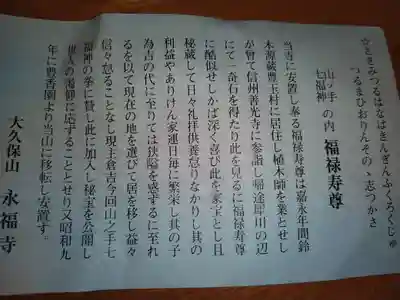 ☆ときみつるはなはきんぎんふくろくじゅ
つるまひおりたそのゝ志つかさ
山ノ手
七福神 の内 福禄寿尊
当寺に安置し奉る福禄寿尊は嘉永年間鈴
木源蔵豊玉村に居住し植木師を業とせし
が曾て信州善光寺に参詣し帰途犀川の辺
にて一奇石を得たり此を見るに福禄寿尊
に酷似せしかば深く喜び此を家宝とし且
秘蔵して日々礼拝供養怠りなかりし其の
利益やありけん家運日毎に繁栄し其の子
為吉の代に至りては狭隘を感ずるに至れ
るを以て現在の地を選びて居を移し益々
信々怠ることなし現主倉吉今回山之手七
福神の挙に賛し此に加入し秘宝を公開し
世人の渇仰に応ずることゝせり又昭和九
年に豊香園より当山に移転し安置す。
大久保山 永福寺